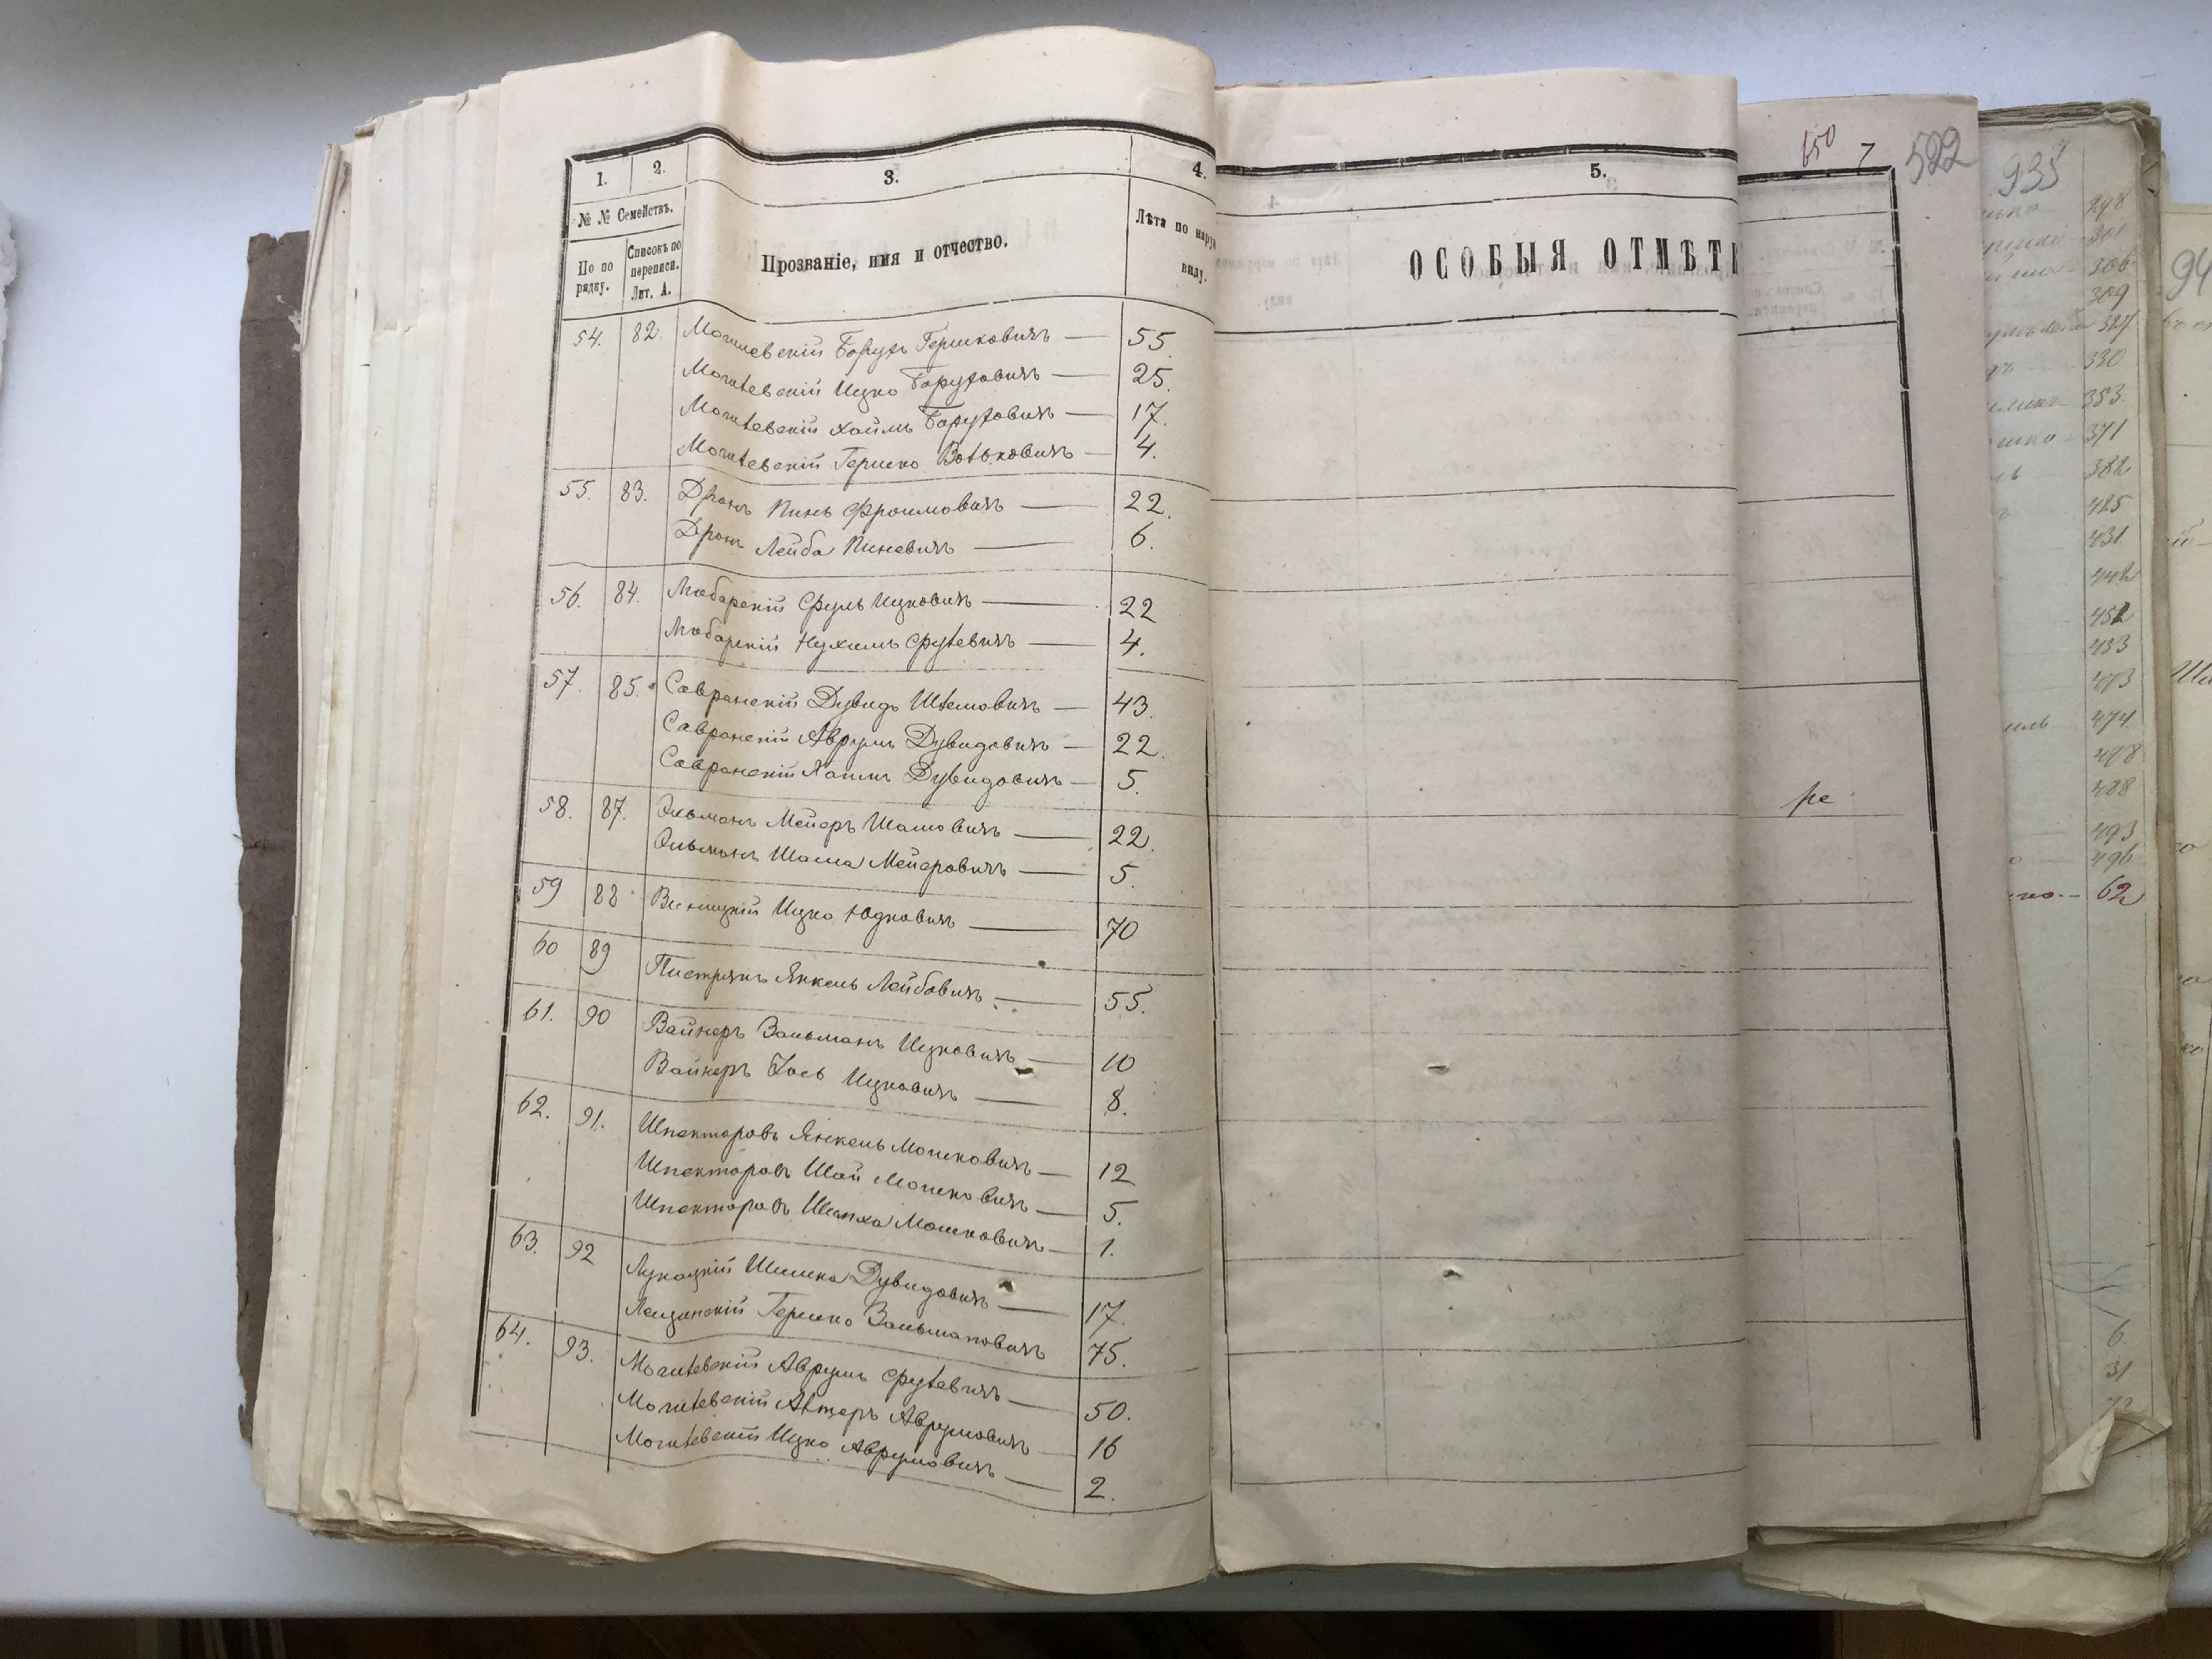 1. 2. 3. 4.
№ № Семействъ.
По по рядку.
Списокъ по переписи. Лит. А.
Прозваніе, имя и отчество.
Лѣта по наруж
виду.
54. 82. Могилевскій Борухъ Гершковичъ — 55.
Могилевскій Ицко Боруховичъ — 25.
Могилевскій Хаимъ Боруховичъ — 17.
Могилевскій Гершко Вольковичъ — 4.
55. 83. Дронъ Пинь Фроимовичъ — 22.
Дронъ Лейба Пиневичъ — 6.
56. 84. Любарскій Сруль Ицковичъ — 22
Любарскій Нухимъ Срулевичъ — 4.
57. 85. Савранскій Дувидъ Шлемовичъ — 43.
Савранскій Аврумъ Дувидовичъ — 22.
Савранскій Хаимъ Дувидовичъ — 5.
58. 87. Ольманъ Мейеръ Шамовичъ — 22.
Ольманъ Шама Мейеровичъ — 5.
59 88 Виницкій Ицко Юдковичъ — 70
60 89 Пистрякъ Янкель Лейбовичъ — 55.
61. 90 Вайнеръ Зальманъ Ицковичъ — 10
Вайнеръ Іось Ицковичъ — 8.
62. 91. Шпекторовъ Янкель Мошковичъ — 12
Шпекторовъ Шай Мошковичъ — 5.
Шпекторовъ Шимха Мошковичъ — 1.
63. 92 Лукацкій Шишка Дувидовичъ — 17.
Лещинскій Гершко Зальмановичъ 75.
64. 93. Могилевскій Аврумъ Срулевичъ — 50.
Могилевскій Альтеръ Аврумовичъ — 16
Могилевскій Ицко Аврумовичъ — 2.
5.
ОСОБЫЯ ОТМѢТК
650 7 522
ре
935
248
306
309
327
330
353
371
382
425
431
442
452
453
473
474
478
488
493
496
62
6
31
94